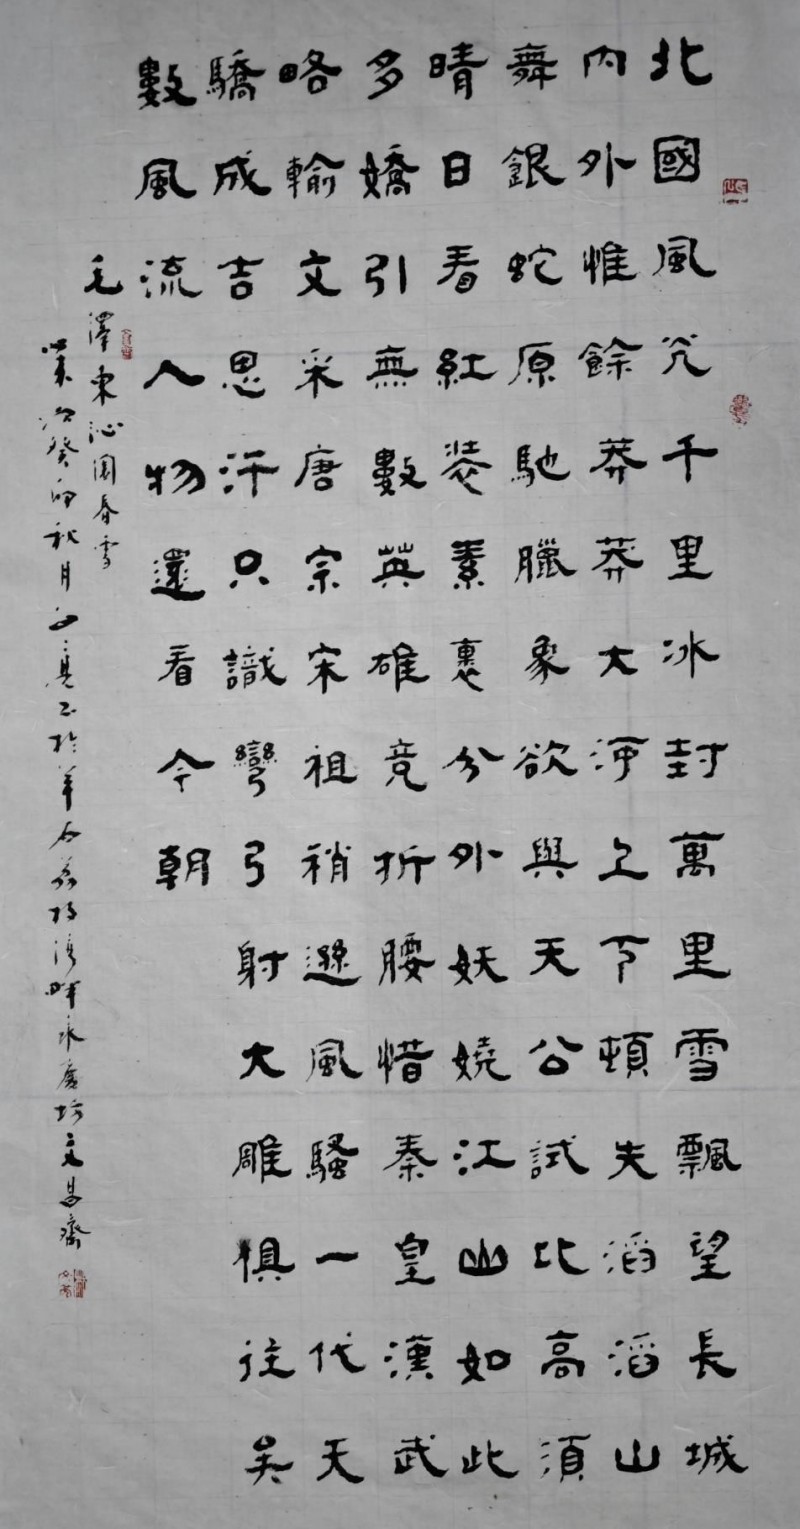 北國風光千里冰封萬里雪飄望長城
內外惟餘莽莽大河上下頓失滔滔山
舞銀蛇原馳臘象欲與天公試比高須
晴日看紅裝素裹分外妖嬈江山如此
多嬌引無數英雄竞折腰惜秦皇漢武
略輸文采唐宗宋祖稍遜風騷一代天
驕成吉思汗只識彎弓射大雕俱往矣
數風流人物還看今朝
毛澤東沁園春雪
歲次癸卯秋月亮书於羊石荔枝湾畔永慶坊文昌齋